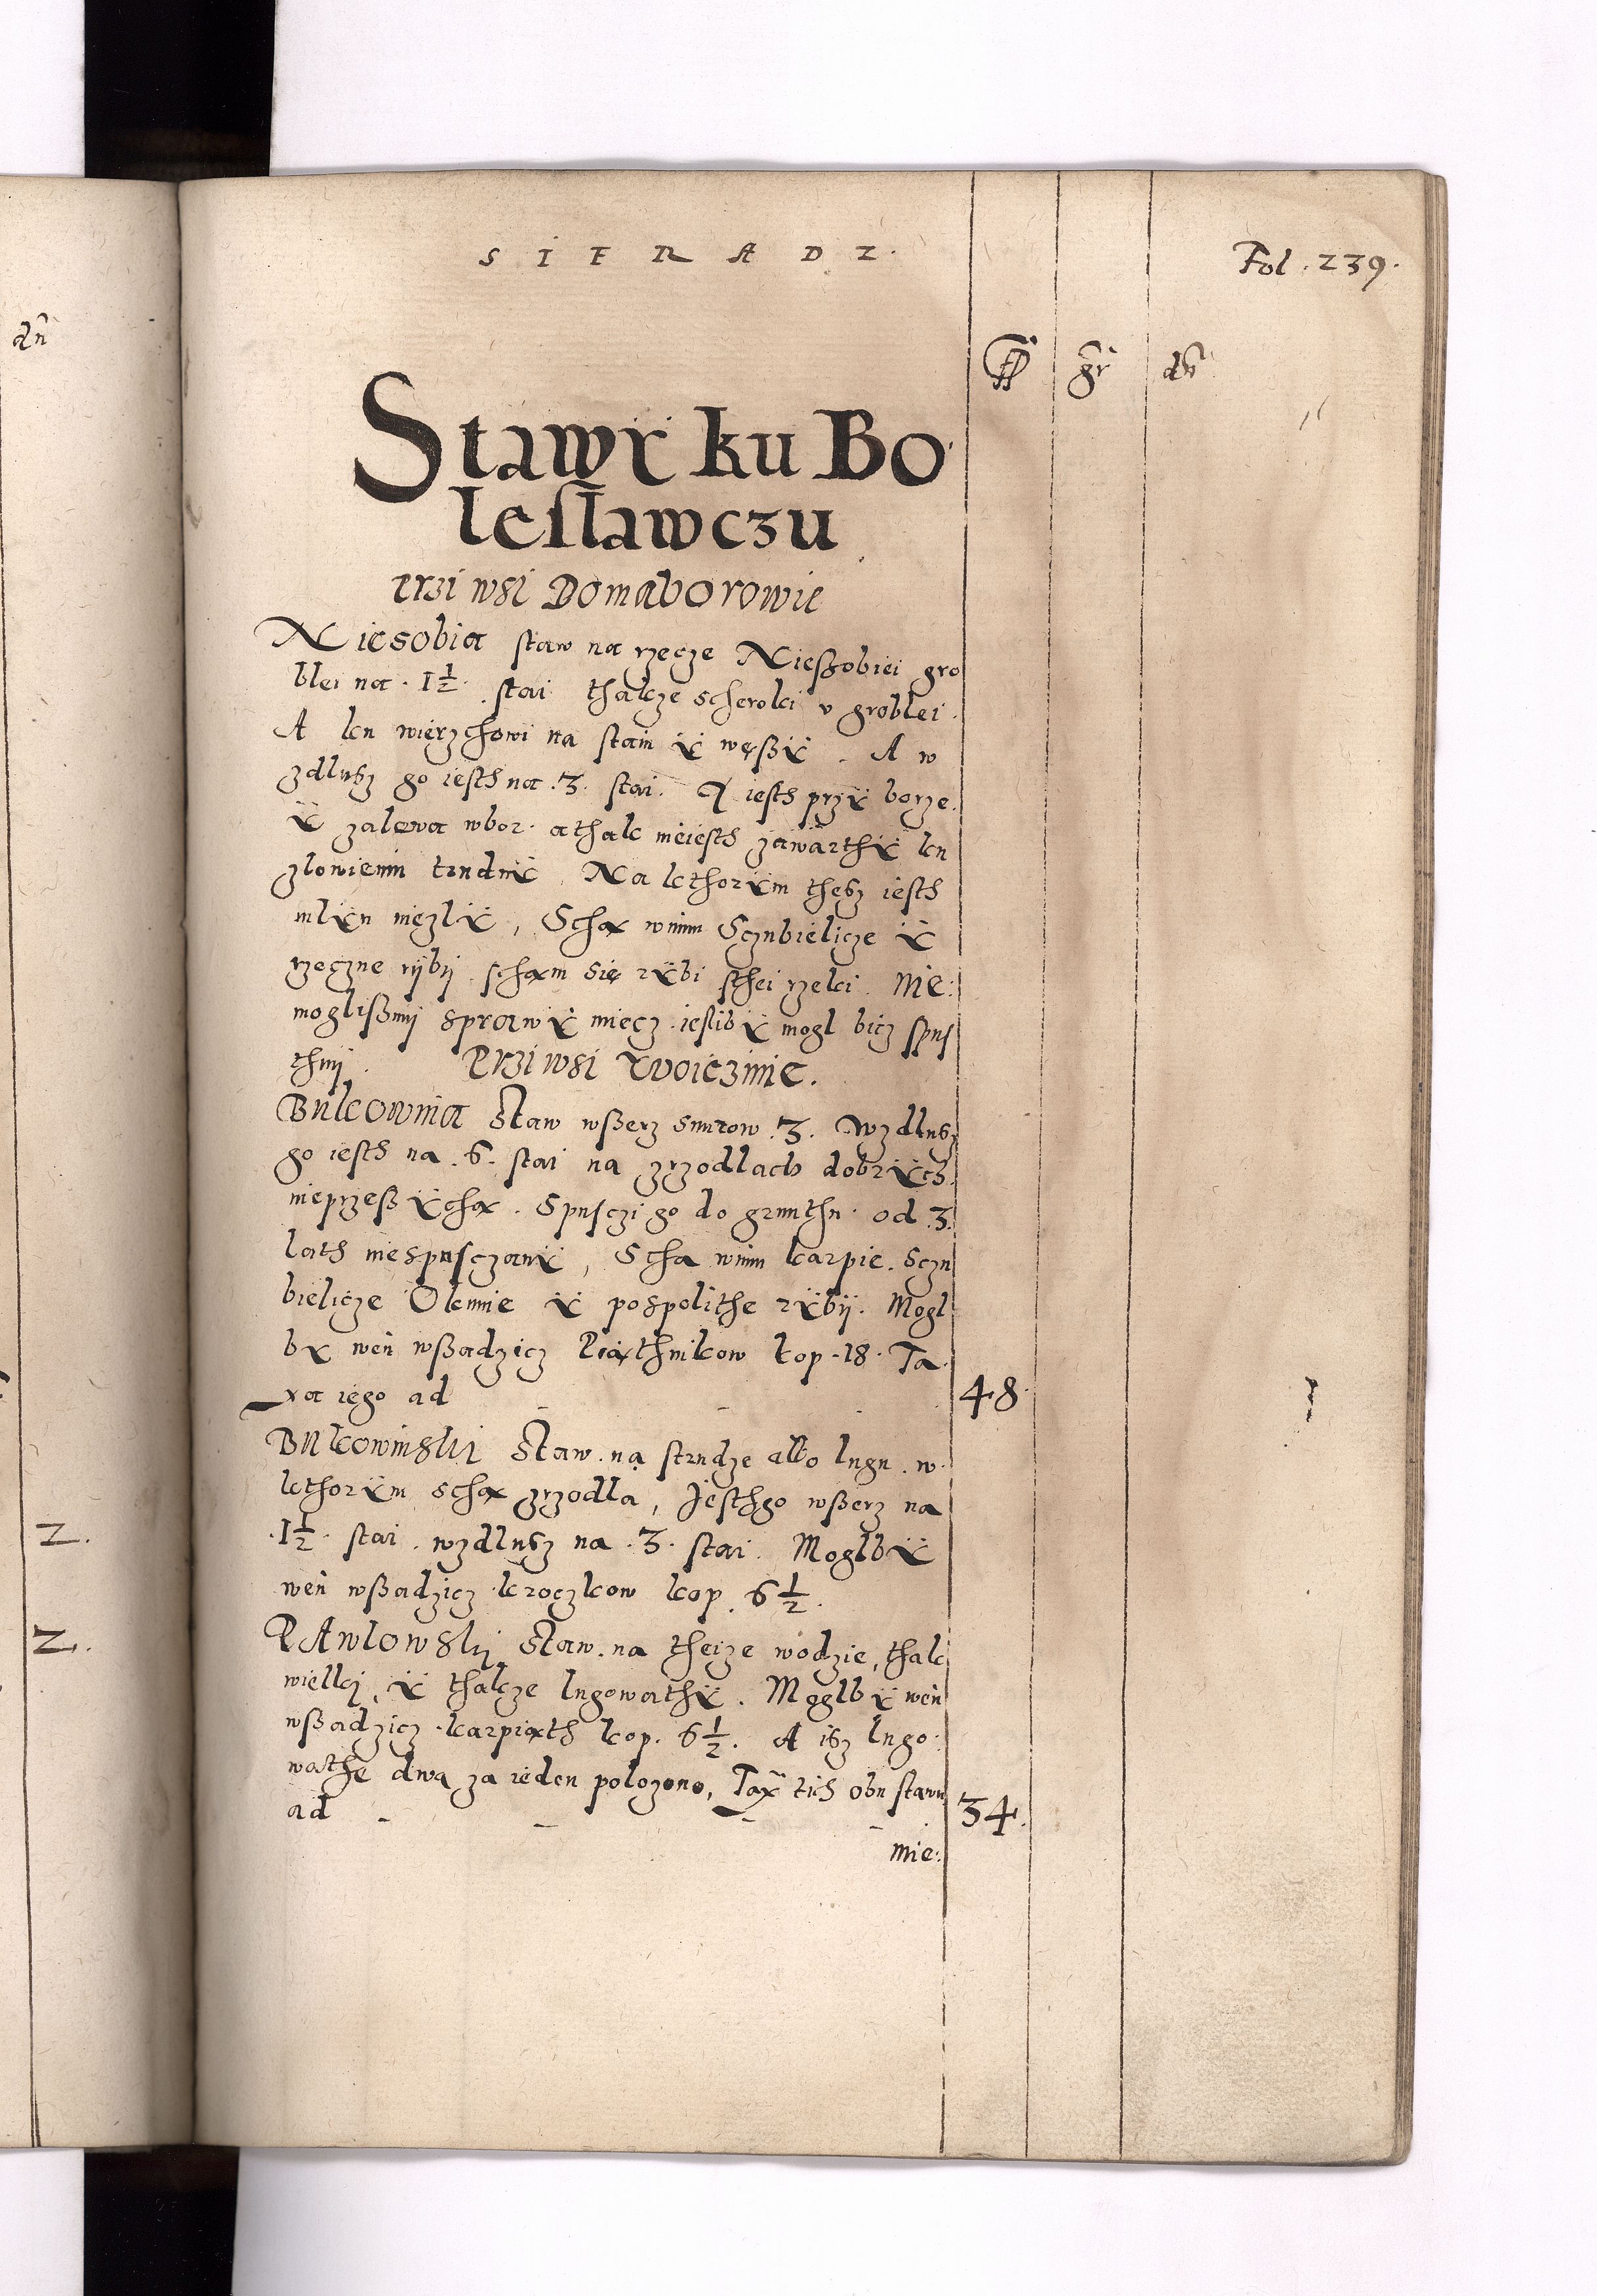 SIERADZ.
Fol. 239.
fl gr dn
Stawy ku Bo
lesławczu
Przi wsi Domaborowie
Niesobia staw na rzecze Nieszobiei gro
blei na . 1½ . stai thakze scheroki v groblei.
A ku wierzchowi na staiu ÿ węßÿ . A w
zdlusz go iesth na .3. stai. J iesth przÿ borze.
ÿ zalewa wbor. athak nieiesth zawarthÿ ku
zlowieniu trudnÿ . Na kthorÿm thesz iesth
mlÿn niezlÿ , Scha wnim Sczubielicze ÿ
rzeczne rijbij scham się rÿbi sthei rzeki . Nie:
moglißmij sprawÿ miecz ieslibÿ mogl bicz spus
thnij . Przi wsi Zwoiczinie.
Bukownia Staw wßerz snurow .3. Wzdlusz
go iesth na .6. stai na zrzodlach dobrÿch.
nieprzeßÿcha . Spusczi go do grunthu . od .3.
lath niespusczanÿ , Scha wnim karpie . Sczu
bielicze Okunie ÿ pospolithe rÿbij . Mogl
bÿ weń wßadzicz Piathnikow kop .18. Ta
xa iego ad 48.
Bukowinskij Staw . na strudze albo lugu . w
kthorÿm scha zrzodla , Jesthgo wßerz na
.1½. stai . wzdlusz na .3. stai . Moglbÿ
weń wßadzicz kroczkow kop . 6½.
Pawlowskij Staw . na theize wodzie , thak
wielki , ÿ thakze lugowathÿ . Moglbÿ weń
wßadzicz karpiath kop . 6½. A isz lugo:
wathe dwa za ieden polozono, Tax tich obu stawu
ad 34.
mie: